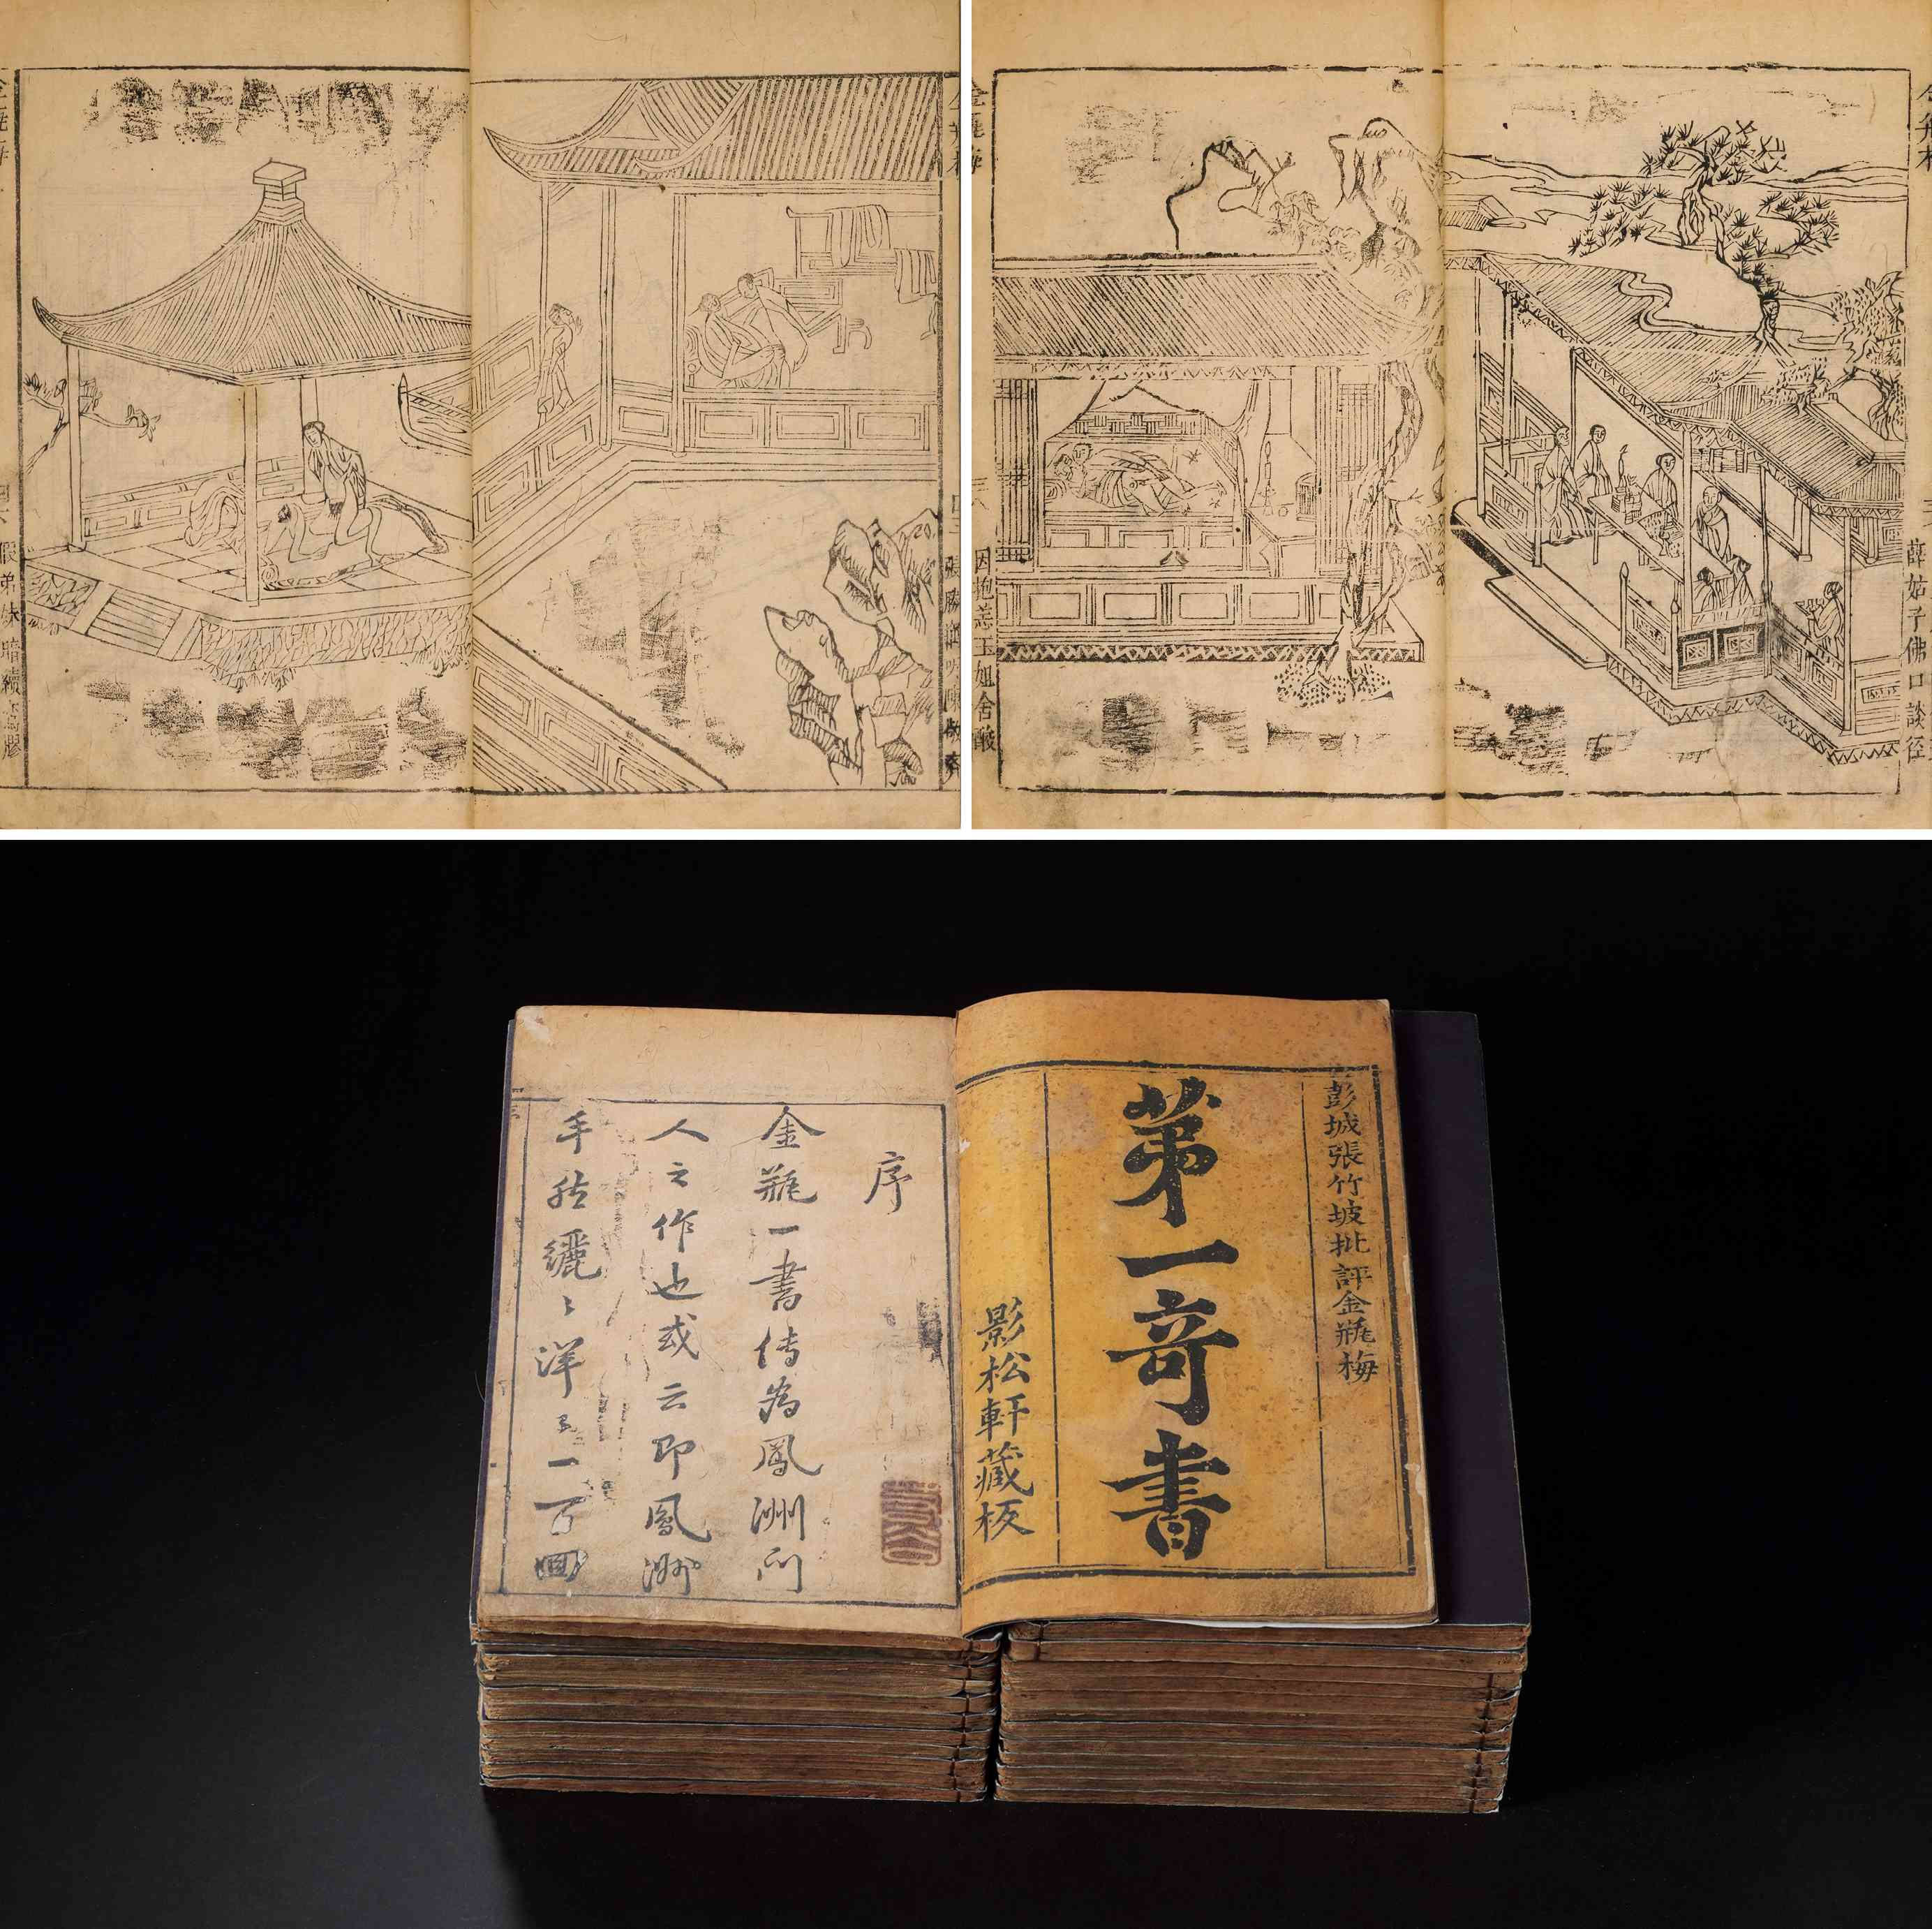 金瓶梅
薛姑子佛口談径
金瓶梅
因抱恙玉姐含酸
金瓶梅
假弟妹暗續鸞膠
彭城張竹坡批評金瓶梅
第一奇書
影松軒藏板
序
金瓶一書傳為鳳洲門
人之作也或云即鳳洲
手然纚〻洋〻一百回